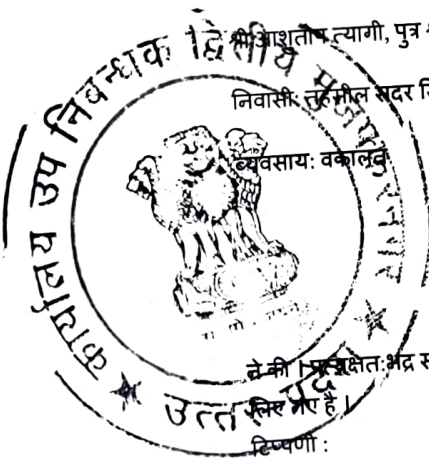 श्री आशुतोष त्यागी, पुत्र
निवासी: तहसील सदर
व्यवसाय: वकालत
ने की । प्रत्यक्षतः भद्र
लिए गए है ।
टिप्पणी :
कार्यालय उप निबन्धक द्वितीय मुजफ्फरनगर
उत्तर प्रदेश